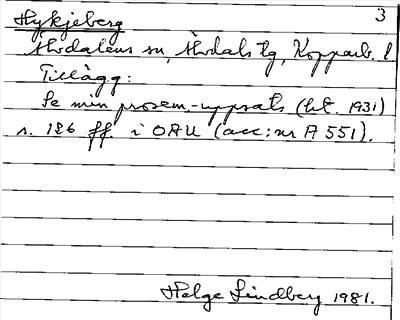 Hykjeberg 3
Älvdalens sn, Älvdals tg, Kopparb. l
Tillägg:
Se min prosem.-uppsats (ht. 1931)
s. 126 ff. i OAU (acc: nr A 551).
Helge Lindberg 1981.